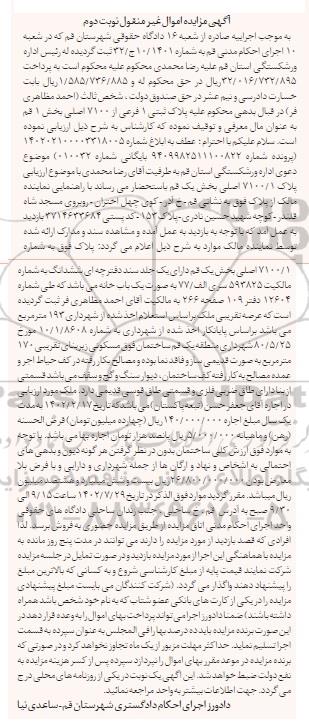 آگهی مزایده اموال غیر منقول نوبت دوم
به موجب اجراییه صادره از شعبه ۱۶ دادگاه حقوقی شهرستان قم که در شعبه
۱۰ اجرای احکام مدنی قم به شماره ۱۴۰۱/۱۰ج/۳۲ ثبت گردیده له رئیس اداره
ورشکستگی استان قم علیه رضا محمدی محکوم علیه محکوم است به پرداخت
۳۲/۰۱۶/۷۳۲/۸۹۵ریال در حق محکوم له و ۱/۵۸۵/۷۳۶/۸۸۵ریال بابت
خسارت دادرسی و نیم عشر در حق صندوق دولت، شخص ثالث (احمد مظاهری
فر) در قبال بدهی محکوم علیه پلاک ثبتی ۱ فرعی از ۷۱۰۰ اصلی بخش ۱ قم
به عنوان مال معرفی و توقیف نموده که کارشناس به شرح ذیل ارزیابی نموده
است. سلام علیکم با احترام؛ عطف به ابلاغ شماره ۱۴۰۲۰۲۱۰۰۰۰۳۳۱۸۰۰۵
(پرونده شماره ۹۴۰۹۹۸۲۵۱۱۱۰۰۸۲۲ بایگانی شماره ۰۱۰۰۳۲) موضوع
دعوی اداره ورشکستگی استان قم به طرفیت آقای رضا محمدی با موضوع ارزیابی
پلاک ۷۱۰۰/۱ اصلی بخش یک قم باستحضار می رساند با راهنمایی نماینده
مالک از پلاک فوق به نشانی قم - خ آذر - کوی چهل اختران - روبروی مسجد شاه
قلندر - کوچه شهید حسین نادری - پلاک ۱۵۳ - کد پستی ۳۷۱۴۶۳۳۶۸۴ بازدید
به عمل آمد که با توجه به بازدید به عمل آمده و مشاهده سند و مدارک ارائه شده
توسط نماینده مالک موارد به شرح ذیل اعلام می گردد: پلاک فوق به شماره
۷۱۰۰/۱ اصلی بخش یک قم دارای یک جلد سند دفترچه ای ششدانگ به شماره
مالکیت ۵۹۳۸۲۵ سری الف/۷۷ به صورت یک باب خانه می باشد که طی شماره
۱۲۶۰۴ دفتر ۱۰۹ صفحه ۲۶۶ به مالکیت آقای احمد مظاهری فر ثبت گردیده
است که عرصه تقریبی ملک براساس استعلام اخذ شده از شهرداری ۱۹۳ مترمربع
می باشد براساس پایانکار اخذ شده از شهرداری به شماره ۱۰/۱/۸۶۰۸ مورخ
۸۰/۵/۲۵ شهرداری منطقه یک قم ساختمان فوق مسکونی زیربنای تقریبی ۱۷۰
مترمربع به صورت قدیمی ساز و فاقد نما بوده و مصالح بکار رفته در کف حیاط آجر و
عمده مصالح به کار رفته کف ساختمان، دیوار سنگ و گچ و سقف می باشد قسمتی
از بنا دارای طاق ضربی فلزی و قسمتی طاق قوسی قدیمی دارد. ملک مورد ارزیابی
در اجاره آقای جعفر حسن (تبعه پاکستان) می باشد که تاریخ ۱۴۰۲/۲/۱۷ به مدت
یک سال مبلغ اجاره ۱۴۰/۰۰۰/۰۰۰ ریال (چهارده میلیون تومان) قرض الحسنه
(رهن) و ماهیانه ۵/۰۰۰/۰۰۰ریال پانصد هزار تومان اجاره بها می باشد. با توجه
به موارد فوق ارزش کلی ساختمان بدون در نظر گرفتن هر گونه دیون و بدهی های
احتمالی به اشخاص و نهاد و ارگان ها از جمله شهرداری و دارایی و با فرض بلا
معارض بودن ۲۶/۸۰۰/۰۰۰/۰۰۰ریال بیست و شش میلیارد و هشتصد میلیون
ریال میباشد. مقرر گردید موارد فوق الذکر در تاریخ ۱۴۰۲/۷/۲۹ ساعت ۹/۱۵ الی
۹/۳۰ صبح به آدرس قم، خ ساحلی، جنب ساختمان دادگاه های حقوقی
واحد اجرای احکام مدنی اتاق مزایده از طریق مزایده حضوری به فروش برسد. لذا
افرادی که قصد بازدید از مورد مزایده را دارند می توانند در مدت پنج روز مانده به
مزایده با هماهنگی این اجرا از مورد مزایده بازدید و در صورت تمایل در جلسه مزایده
شرکت نمایند قیمت پایه از مبلغ کارشناسی شروع و به کسانی که بالاترین مبلغ
را پیشنهاد دهند واگذار می گردد. (شرکت کنندگان می بایست مبلغ پیشنهادی
مزایده را در یکی از کارت های بانکی عضو شتاب که به نام خود شخص باشد همراه
داشته باشند) ضمنا دادورز اجرا می تواند پرداخت بهای اموال را به وعده قرار دهد در
این صورت برنده مزایده باید ده درصد بها را فی المجلس به عنوان سپرده به قسمت
اجرا تسلیم نماید. حداکثر مهلت مزبور از یک ماه تجاوز نخواهد کرد و در صورتی که
برنده مزایده در موعد مقرر بهای اموال را نپردازد سپرده پس از کسر هزینه مزایده به
نفع دولت ضبط خواهد شد. این آگهی یک نوبت در یکی از روزنامه های محلی درج
می گردد. جهت اطلاعات بیشتر به واحد مراجعه نمائید.
دادورز اجرای احکام دادگستری شهرستان قم-ساعدی نیا